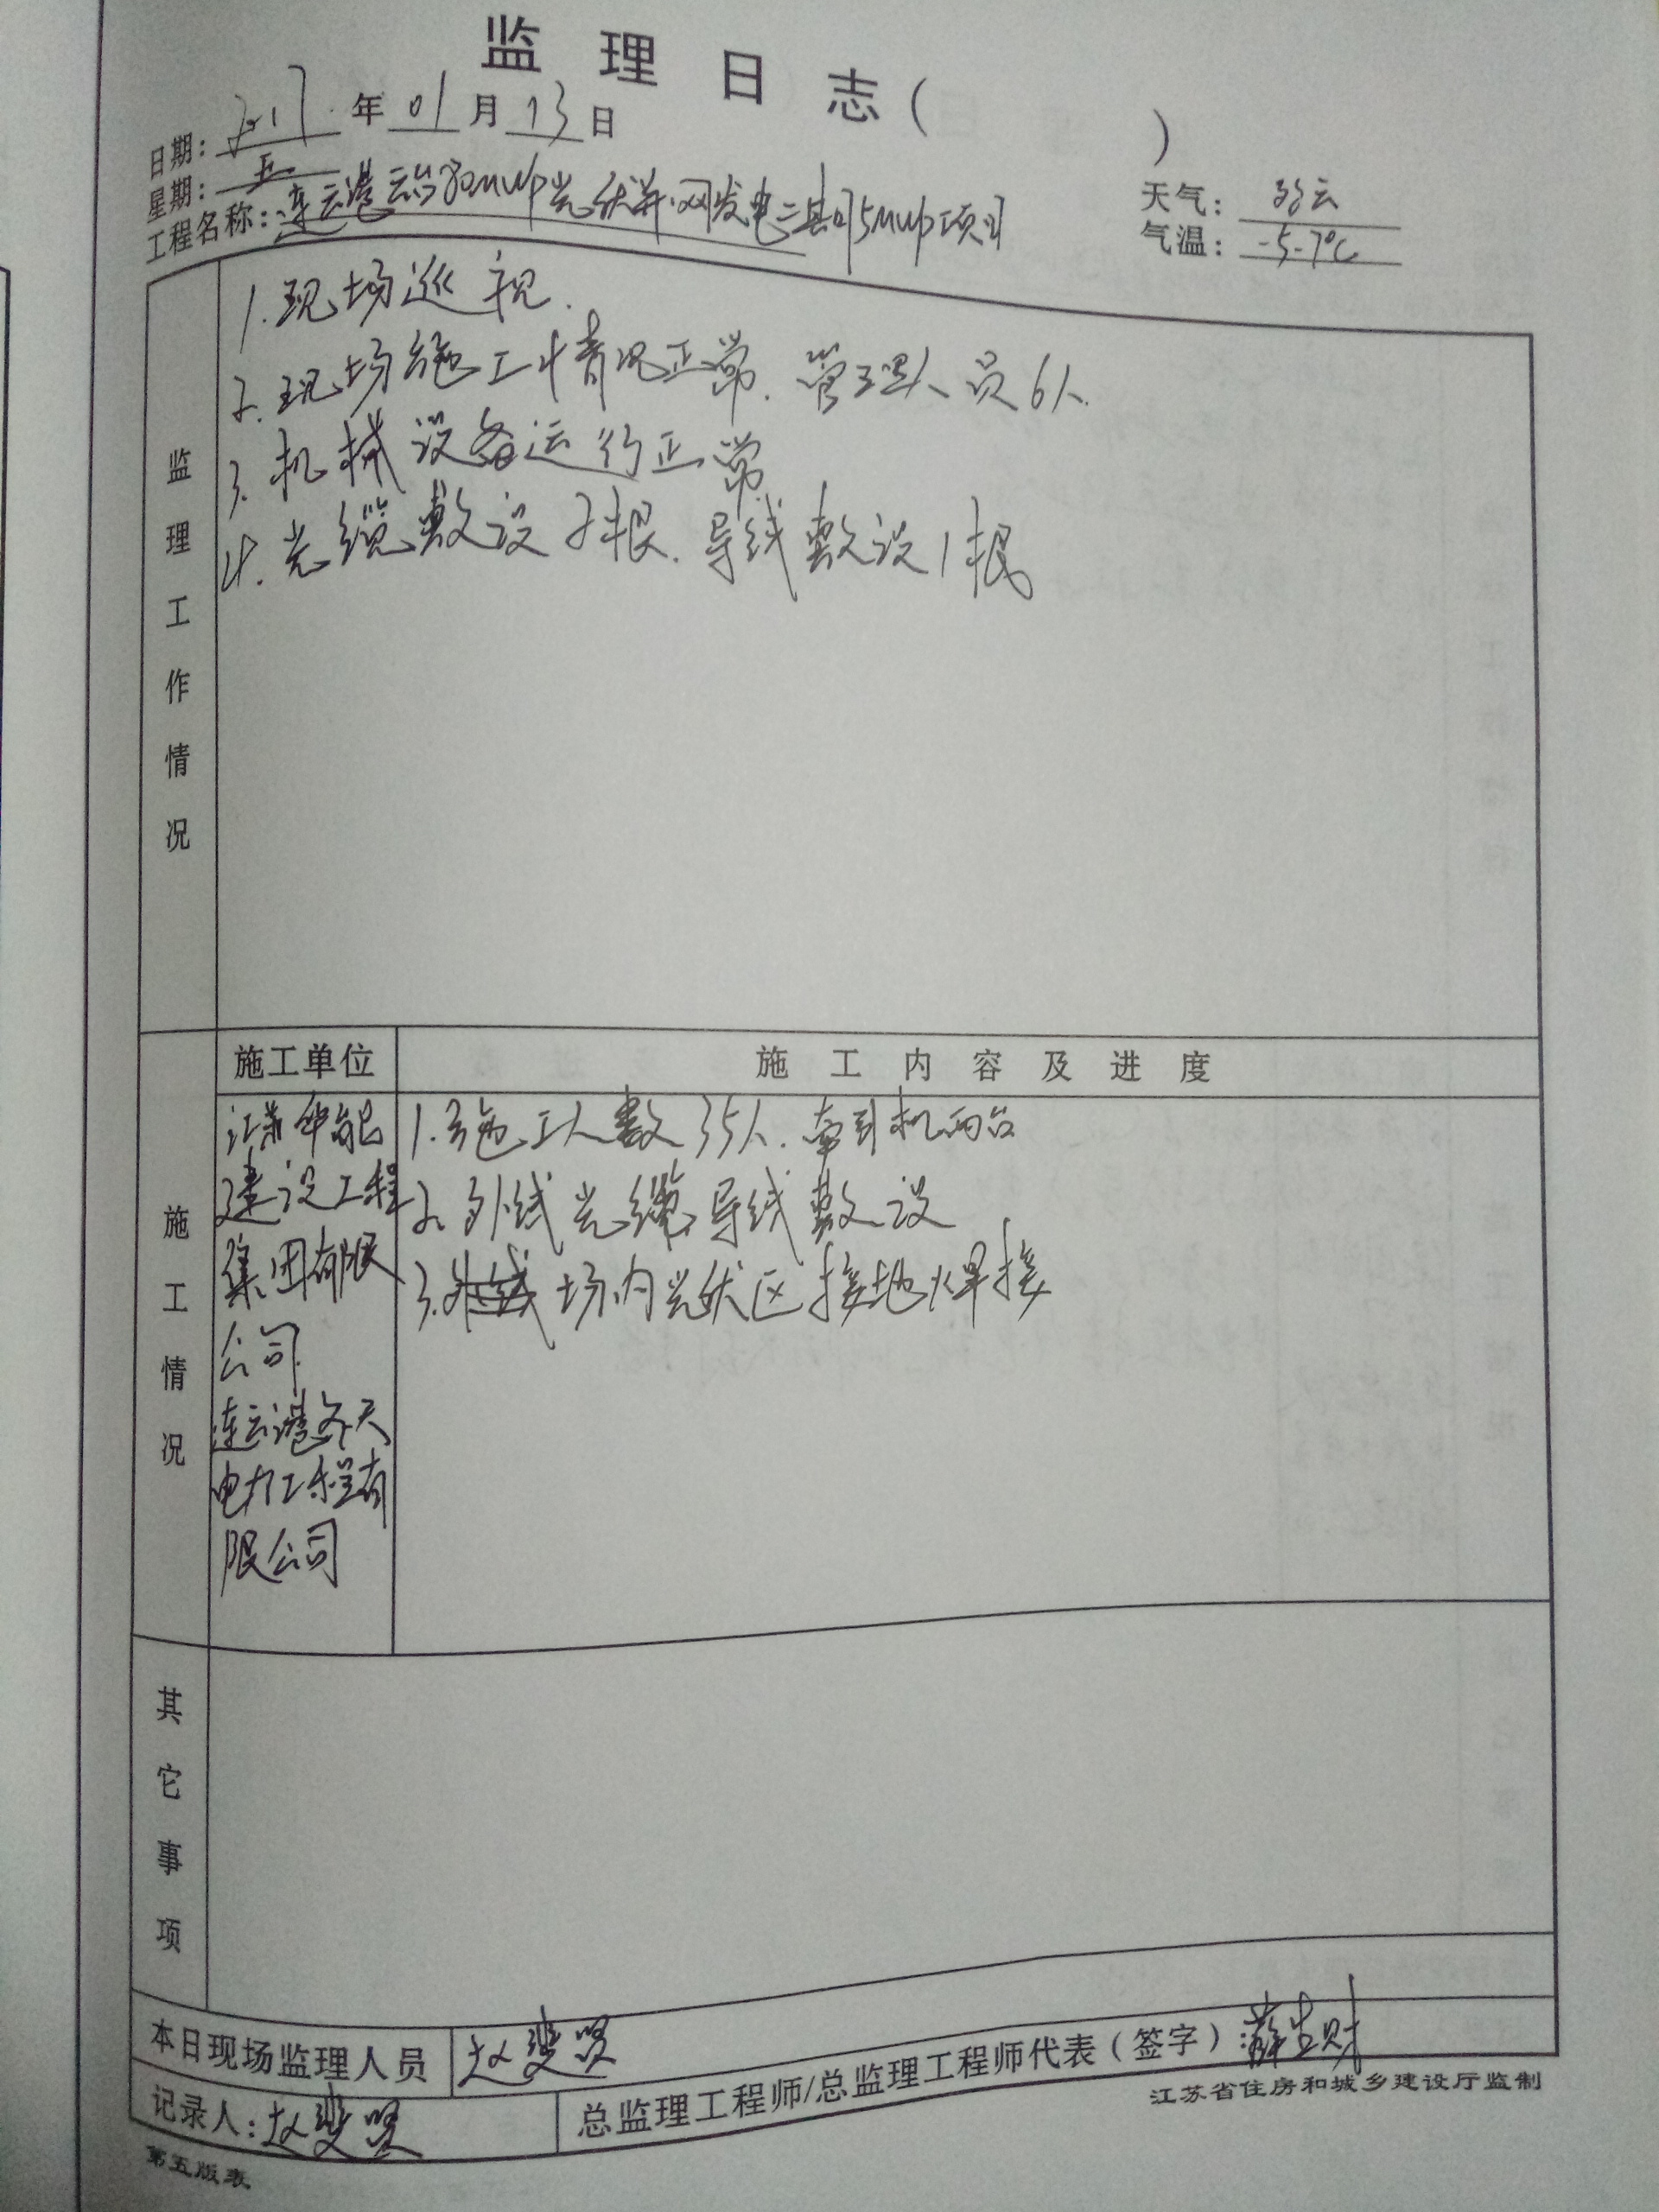 监理日志（ ）
日期：2017年01月13日
星期：五
天气：多云
工程名称：连云港云台80MWp光伏并网发电二期15MWp项目
气温：-5-7℃
监理工作情况
1.现场巡视.
2.现场施工情况正常.管理人员6人.
3.机械设备运行正常
4.光缆敷设2根.导线敷设1根
施工单位
施工内容及进度
施工情况
江苏华能
建设工程
集团有限
公司
连云港冬天
电力工程有
限公司
1.施工人数35人.牵引机两台
2.外线光缆导线敷设
3.外线场内光伏区接地焊接
其它事项
本日现场监理人员 赵斐
记录人：赵斐
总监理工程师/总监理工程师代表（签字）：薛生财
江苏省住房和城乡建设厅监制
第五版表